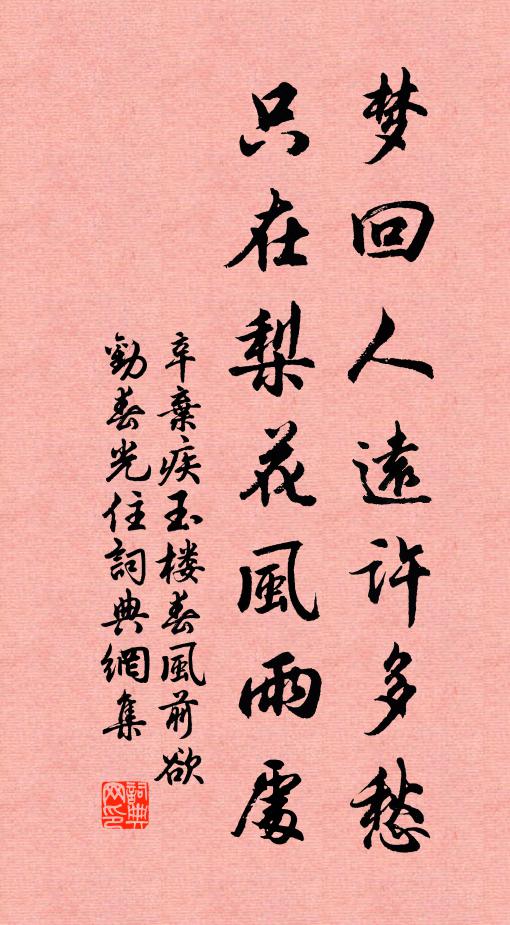 梦回人遠許多愁
只在梨花風雨處
辛棄疾玉楼春風前欲
勸春光住詞典網集
詞典网印